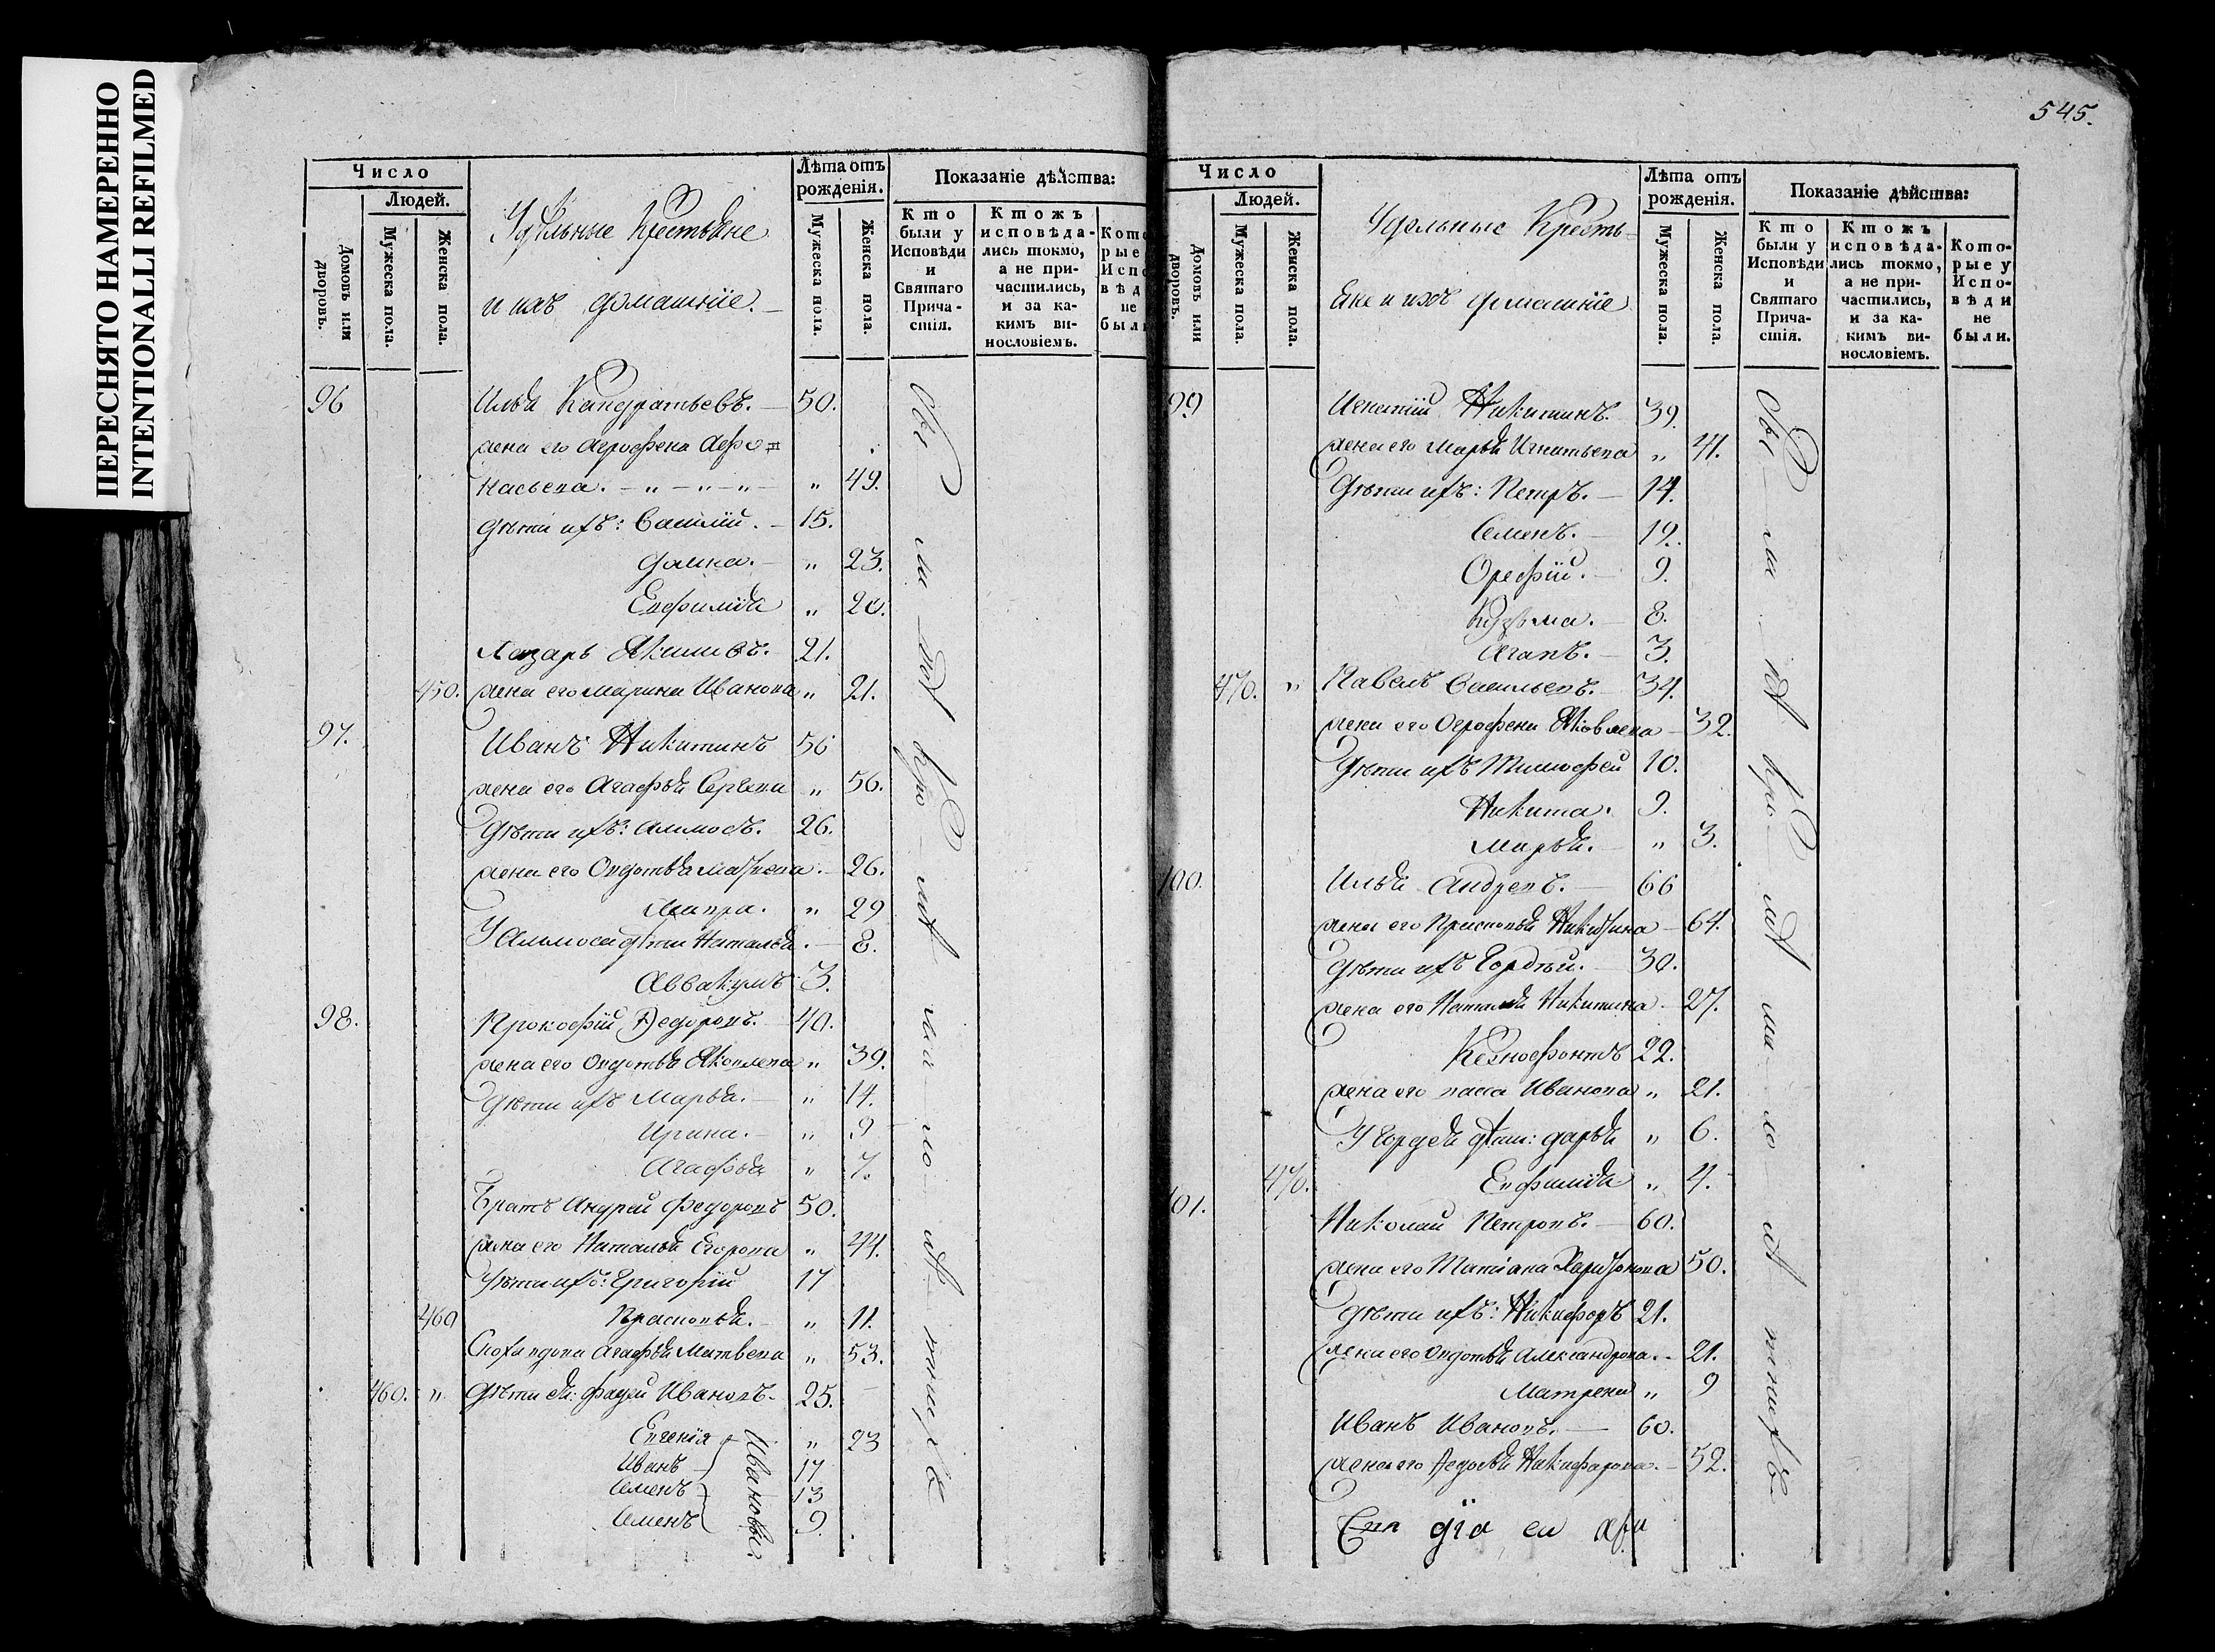 ПЕРЕСНЯТО НАМЕРЕННО
INTENTIONALLI REFILMED
Число
Людей.
Домовъ или дворовъ.
Мужеска пола.
Женска пола.
Удѣльные Крестьяне
и ихъ домашнiе.
Лѣта отъ рожденiя.
Мужеска пола.
Женска пола.
Показанiе дѣйства:
Кто были у Исповѣди и Святаго Причастiя.
Ктожъ исповѣдались токмо, а не причастились, и за какимъ винословiемъ.
Кото
рые
Испо
вѣд
не
были
96 Илья Кандратьевъ. 50.
жена его Агрофена Афо=
насьева. — " — " — " — " 49.
Дѣти ихъ: Василiй. 15.
Домна. " 23.
Евфимiя " 20.
Лазарь Якимовъ. 21.
450. жена его Марина Иванова " 21.
97. Иванъ Никитинъ 56
жена его Агафья Сергѣева " 56.
Дѣти ихъ: Алимосъ. 26.
жена его Овдотья Матвеева. 26.
Мавра. " 29
У Алимоса дѣти Наталья. 8.
Аввакумъ 3.
98. Прокофiй Ѳедоровъ. 40.
жена его Овдотья Яковлева " 39.
Дѣти ихъ Марья. " 14.
Ирина. " 9
Агафья " 7.
Братъ Андрей Федоровъ 50.
жена его Наталья Егорова " 44.
Дѣти ихъ: Григорiй 17
460 Прасковья. " 11.
Сноха вдова Агафья Матвеева " 53.
460. " Дѣти ея: Фадей Ивановъ. 25.
Евгенiя " 23
Иванъ 17
Семенъ 13
Семенъ 9.
Ивановы.
545.
Число
Людей.
Домовъ или дворовъ.
Мужеска пола.
Женска пола.
Удельные Кресть-
яне и ихъ домашнiе
Лѣта отъ рожденiя.
Мужеска пола.
Женска пола.
Показанiе дѣйства:
Кто были у Исповѣди и Святаго Причастiя.
Ктожъ исповѣдались токмо, а не причастились, и за какимъ винословiемъ.
Которые у Исповѣди не были.
99 Игнатiй Никитинъ. 39.
жена его Марья Игнатьева " 41.
Дѣти ихъ: Петръ. 14.
Семенъ. 12.
Орефiй. 9.
Кузьма. 8.
Агапъ. 3.
470. " Павелъ Васильевъ. 34.
жена его Огрофена Яковлева 32.
Дѣти ихъ Тимофей 10.
Никита. 9.
Марья. " 3.
100. Илья Андреевъ. 66
жена его Прасковья Никитина 64.
Дѣти ихъ Гордѣй. 30.
жена его Наталья Никитина 27.
Ксенофонтъ 22.
жена его Васса Иванова " 21.
У Гордея дѣти: Дарья " 6.
470. Евфимiя " 4.
101. Николай Петровъ. 60.
жена его Татiана Харитонова 50.
Дѣти ихъ: Никифоръ 21.
жена его Овдотья Александрова. 21.
Матрена " 9
Иванъ Ивановъ. 60.
жена его Ѳедосья Никифорова. 52.